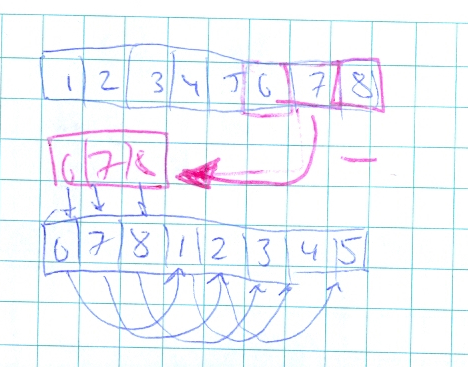 1 2 3 4 5 6 7 8
6 7 8
6 7 8 1 2 3 4 5